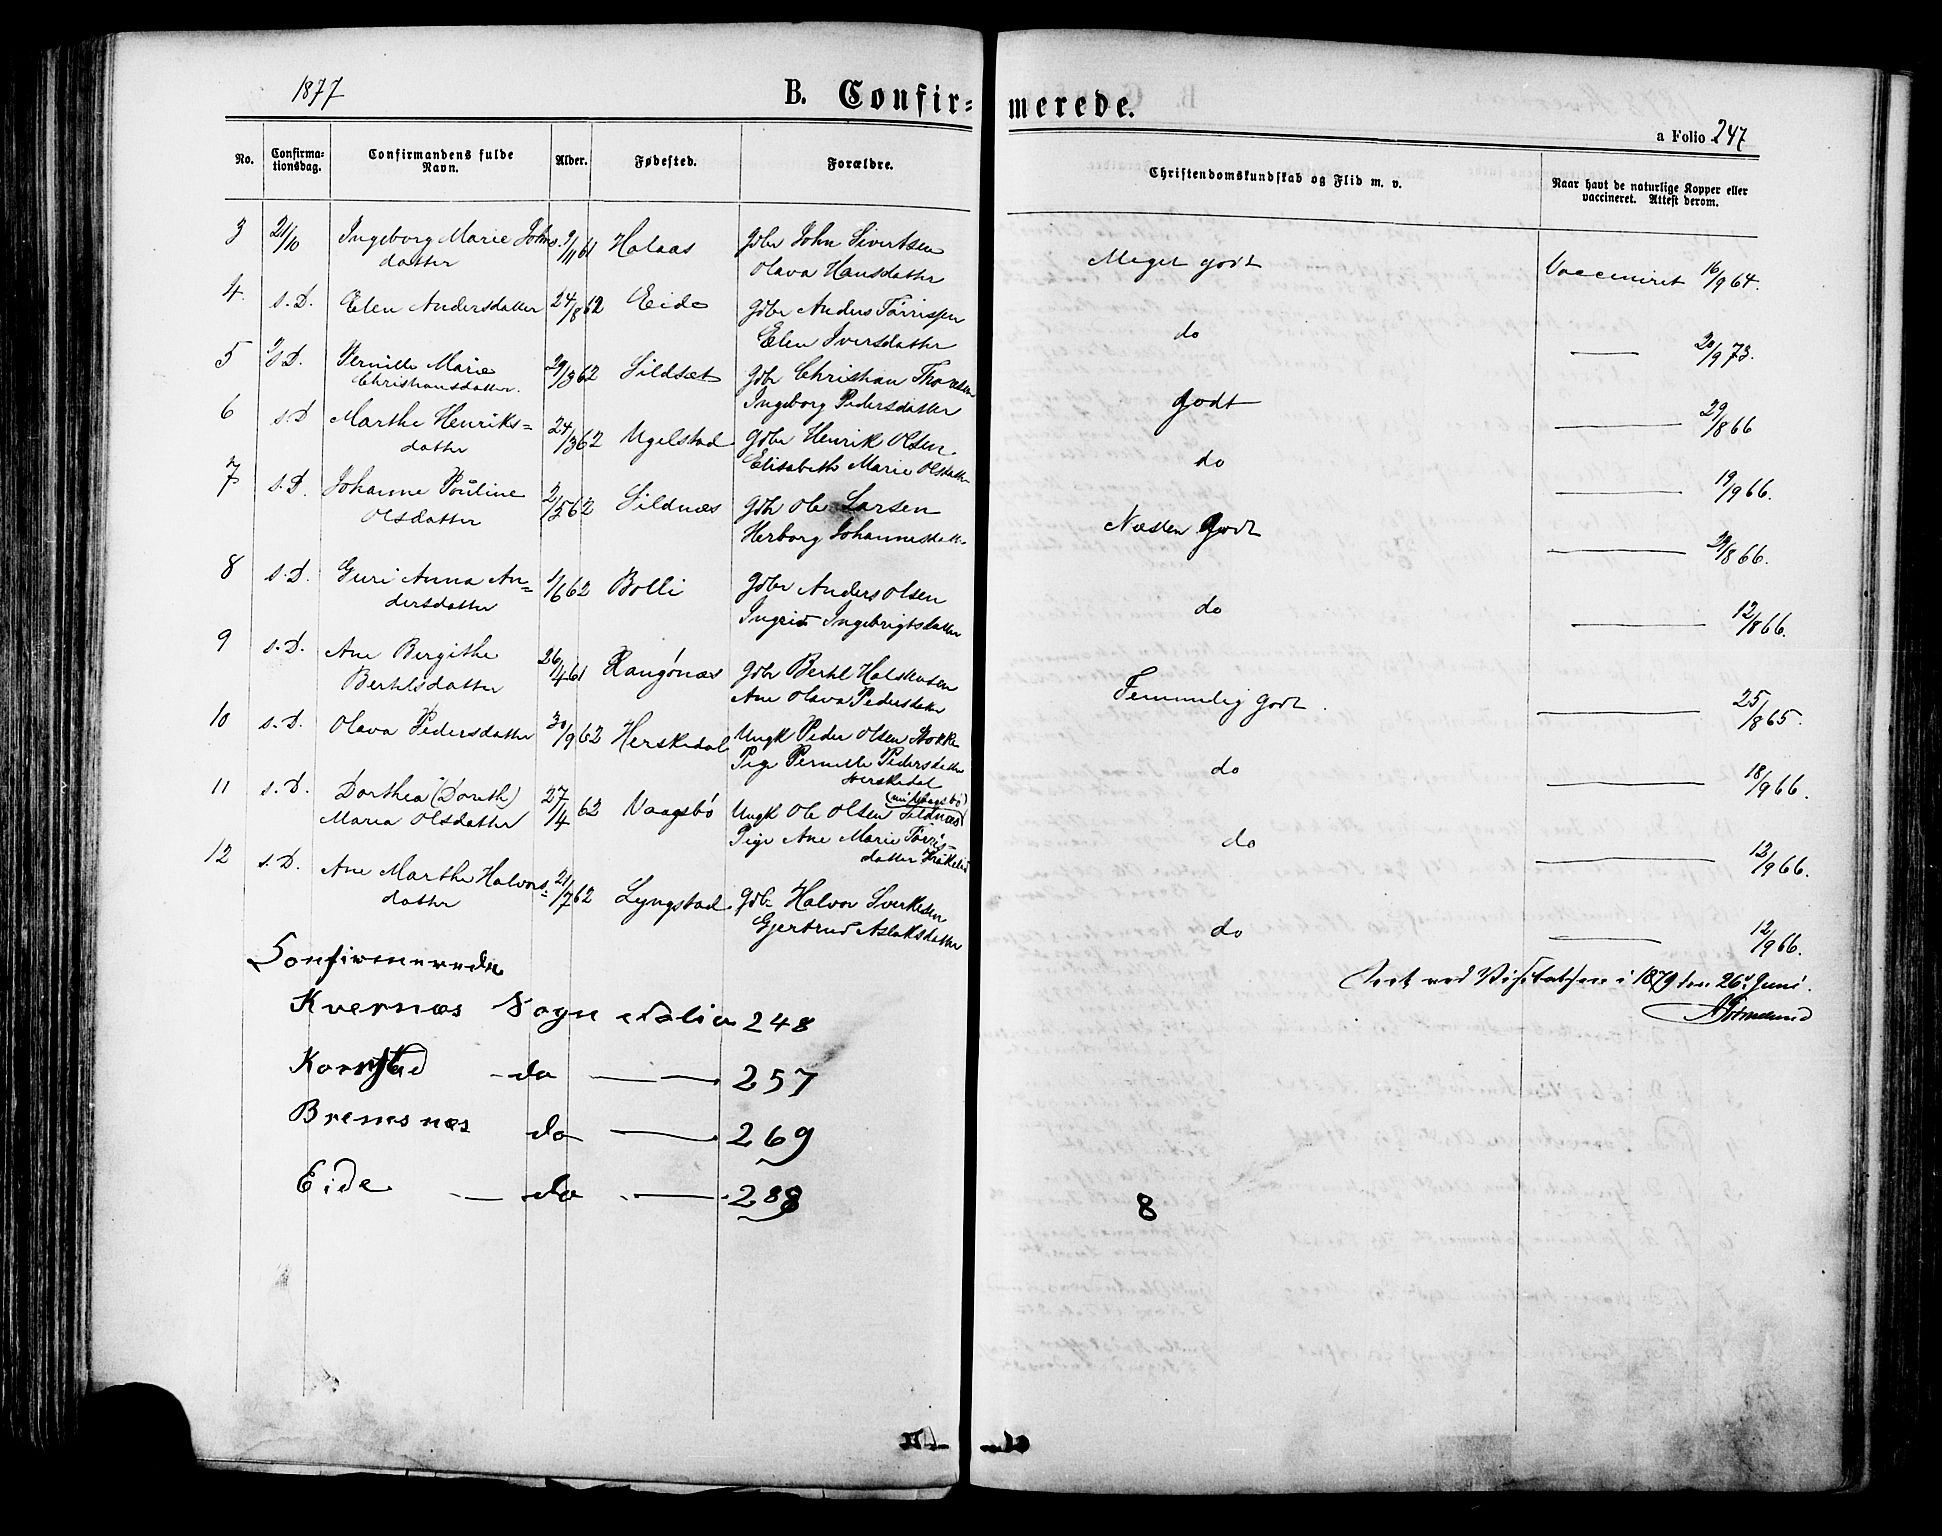 1877
B. Confir=
merede.
a Folio 247
No.
Confirma-
tionsdag.
Confirmandens fulde
Navn.
Alder.
Fødested.
Forældre.
Christendomskundskab og Flid m. v.
Naar havt de naturlige Kopper eller
vaccineret. Attest derom.
3 21/10 Ingeborg Marie Johns. 9/11 61 Holaas Gdbr John Sivertsen Meget godt Vaccineret 16/9 64.
datter Olava Hansdatter
4. s. D. Elen Andersdatter 24/8 62 Eide Gdbr Anders Tørrissen do — 20/9 73.
Elen Iversdatter
5 s. D. Pernille Marie 29/3 62 Sildset Gdbr Christian Thoresen godt — 29/8 66
Christiansdatter. Ingeborg Pedersdatter
6 s. D Marthe Henriks= 24/3 62 Ugelstad Gdbr Henrik Olsen do — 19/9 66.
datter Elisabeth Marie Olsdatter
7 s. D. Johanne Pouline 2/5 62 Sildnæs Gdbr Ole Larsen Næsten Godt — 29/8 66.
Olsdatter Herborg Johannesdatter
8 s. D. Guri Anna An= 1/6 62 Bolli Gdbr Anders Olsen do — 12/8 66.
dersdatter Ingrid Ingebrigtsdatter
9 s. D. Ane Bergithe 26/4 61 Rangønæs Gdbr Bertel Temmelig godt. — 25/8 65.
Bertelsdatter Ane Olava Pedersdatter
10 s. D. Olava Pedersdatter 30/9 62 Herskedal Ungk Peder Olsen Stokke do — 18/9 66.
Pige Pernille Pedersdatter
Herskedal
11 s. D. Dorthea (Doreth) 27/4 62 Vaagsbø Ungk Ole Olsen Sildnæs do — 12/9 66.
Maria Olsdatter Pige Ane Marie Tørris-
datter
12 s. D. Ane Marthe Halvors= 21/7 62 Lyngstad Gdbr Halvor Sverkesen do — 12/9 66.
datter Gjertrud Aslaksdatter
Seet ved Visitatsen i 1879 den 26d Juni.
Confirmerede
Kvernæs Sogn Folio 248
Kornstad — do — 257
Bremsnæs do — 269
Eide — do — 288
8